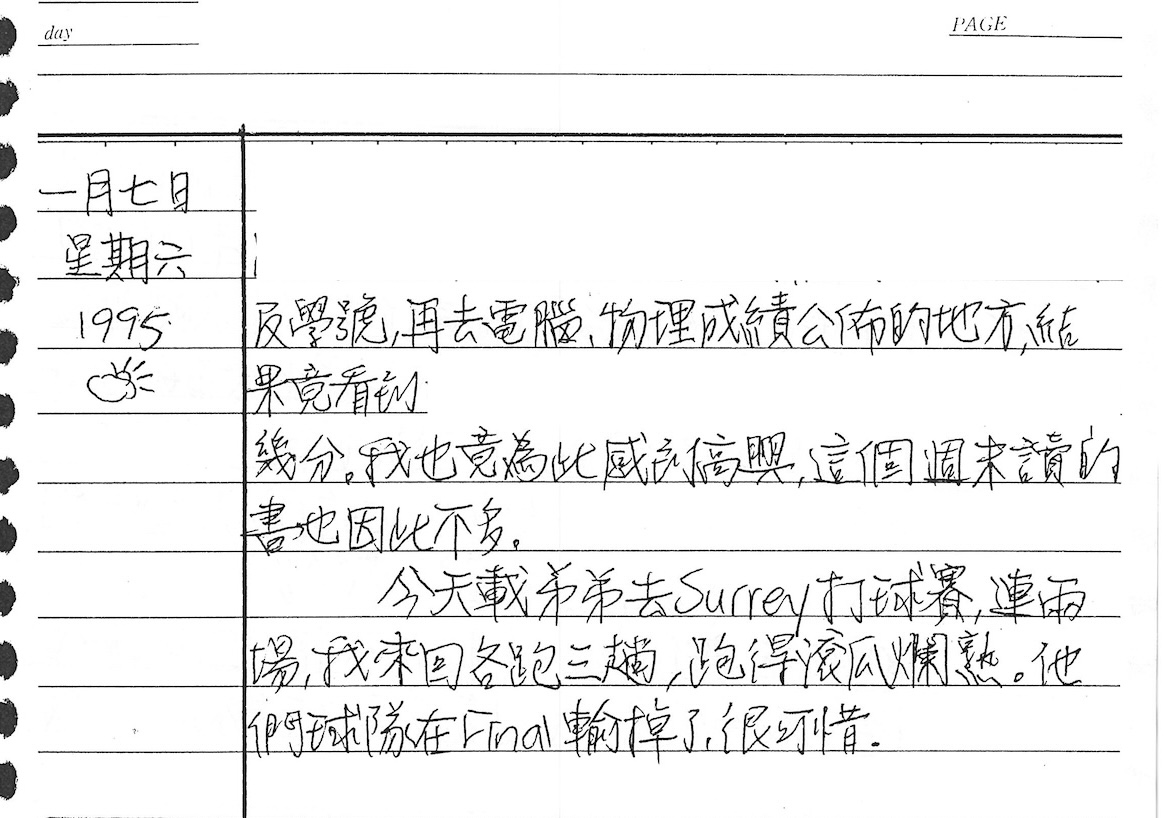 day
PAGE
一月七日
星期六
1995
及學號,再去電腦、物理成績公佈的地方,結
果竟看到
幾分。我也竟為此感到高興,這個週末讀的
書也因此不多。
今天載弟弟去Surrey打球賽,連兩
場,我來回各跑三趟,跑得滾瓜爛熟。他
們球隊在Final輸掉了,很可惜.